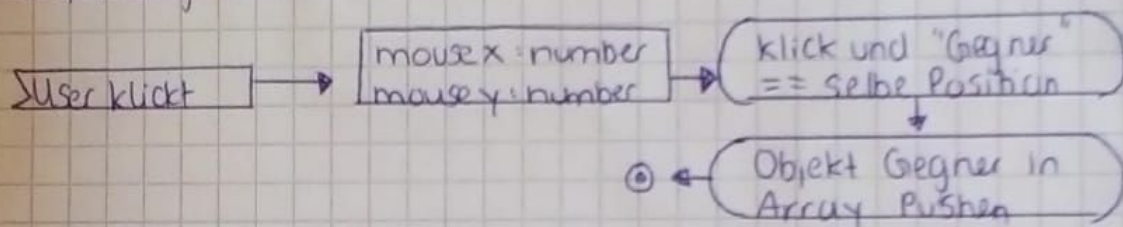 User klickt
mousex:number
mousey:number
Klick und "Gegner"
== selbe Position
Objekt Gegner in
Array Pushen